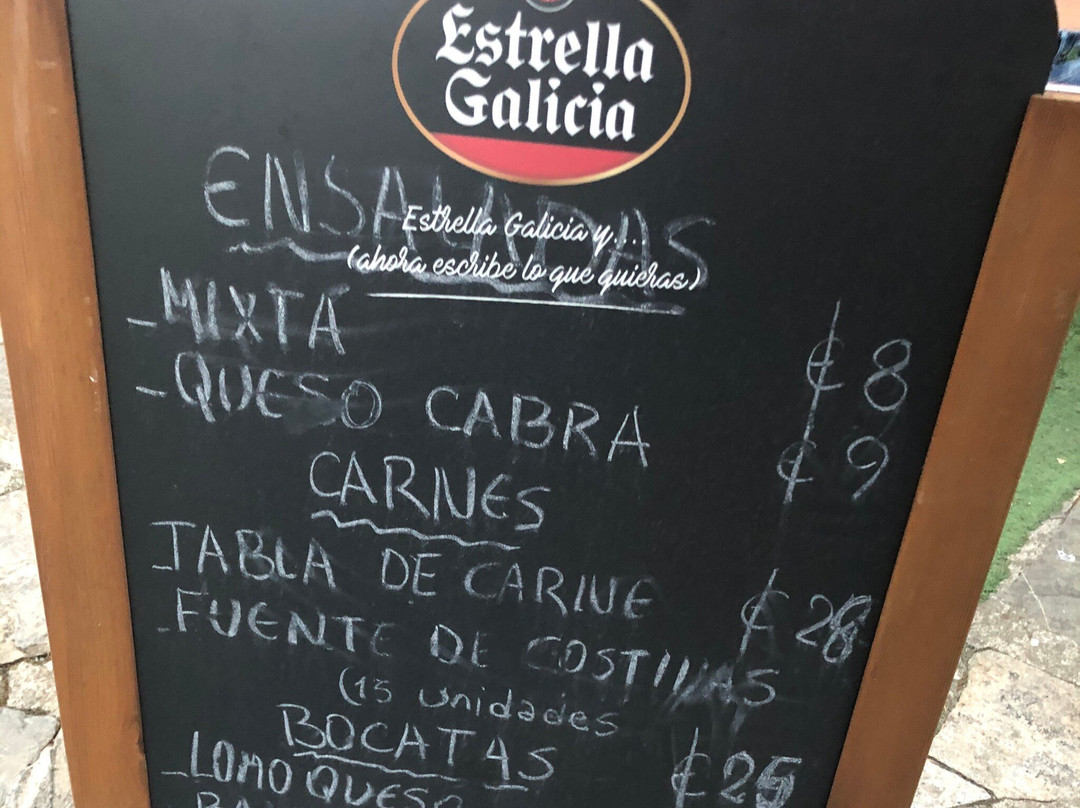 Estrella
Galicia
ENSALADAS
Estrella Galicia y...
(ahora escribe lo que quieras)
- MIXTA ¢ 8
- QUESO CABRA ¢ 9
CARNES
- TABLA DE CARNE ¢ 28
- FUENTE DE COSTILLAS
(15 unidades ¢ 25
BOCATAS
- LOMO QUESO